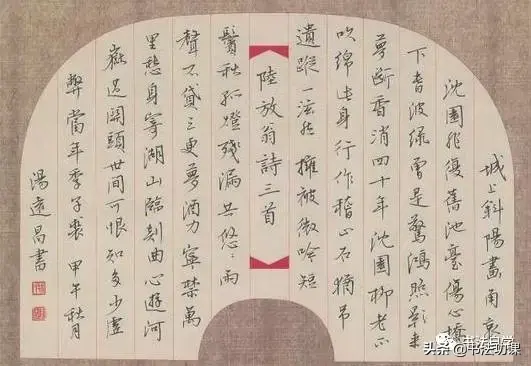 城上斜陽畫角哀
沈園非復舊池臺傷心橋
下春波綠曾是驚鴻照影來
夢斷香消四十年沈園柳老不
吹綿此身行作稽山土猶吊
遺蹤一泫然擁被微吟短
陸放翁詩三首
鬢秋孤燈殘漏共悠々雨
聲不貸三更夢酒力寧禁萬
里愁身寄湖山臨剡曲心遊河
嶽過關頭世間可恨知多少虛
弊當年季子裘 甲午秋月
湯遠昌書
书法自学
头条@书法功课